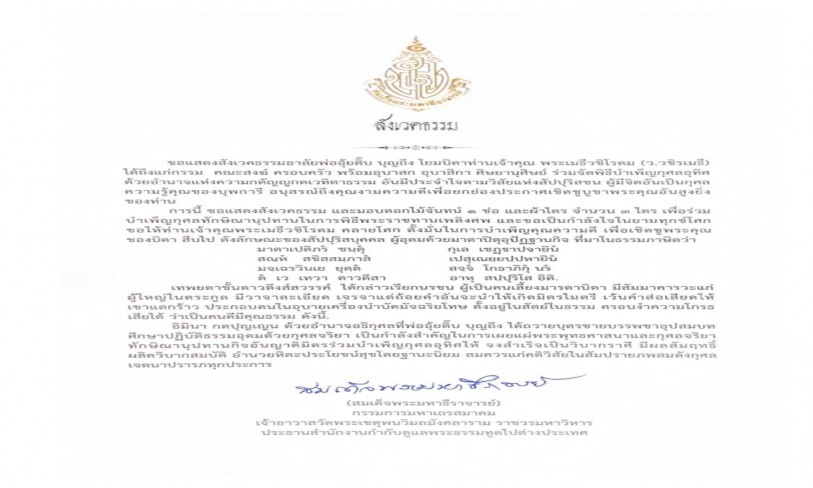 สังเวคธรรม
ขอแสดงสังเวคธรรมอาลัยพ่ออุ้ยติ๊บ บุญถึง โยมบิดาท่านเจ้าคุณ พระเมธีวชิโรดม (ว.วชิรเมธี)
ได้ถึงแก่กรรม คณะสงฆ์ ครอบครัว พร้อมอุบาสก อุบาสิกา ศิษยานุศิษย์ ร่วมจัดพิธีบำเพ็ญกุศลอุทิศ
ด้วยอำนาจแห่งความกตัญญูกตเวทิตาธรรม อันมีประจำใจตามวิสัยแห่งสัปปุริสชน ผู้มีจิตอันเป็นกุศล
ความรู้คุณของบุพการี อนุสรณ์ถึงคุณงามความดีเพื่อยกย่องประกาศเชิดชูบูชาพระคุณอันสูงยิ่ง
ของท่าน
การนี้ ขอแสดงสังเวคธรรม และมอบดอกไม้จันทน์ ๑ ช่อ และผ้าไตร จำนวน ๓ ไตร เพื่อร่วม
บำเพ็ญกุศลทักษิณานุปทานในการพิธีพระราชทานเพลิงศพ และขอเป็นกำลังใจในยามทุกข์โศก
ขอให้ท่านเจ้าคุณพระเมธีวชิโรดม คลายโศก ตั้งมั่นในการบำเพ็ญคุณความดี เพื่อเชิดชูพระคุณ
ของบิดา สืบไป ดังลักษณะของสัปปุริสบุคคล ผู้อุดมด้วยมาตาปิตุอุปัฏฐานกิจ ที่มาในธรรมภาษิตว่า
มาตาเปติภรํ ชนฺตุํ กุเล เชฏฺฐาปจายินํ
สณฺหํ สขิลสมฺภาสํ เปสุเณยฺยปฺปหายินํ
มจฺเฉรวินเย ยุตฺตํ สจฺจํ โกธาภิภุํ นรํ
ตํ เว เทวา ตาวตึสา อาหุ สปฺปุริโส อิติ.
เทพยดาชั้นดาวดึงส์สวรรค์ ได้กล่าวเรียกนรชน ผู้เป็นคนเลี้ยงมารดาบิดา มีสัมมาคารวะแก่
ผู้ใหญ่ในตระกูล มีวาจาละเอียด เจรจาแต่ถ้อยคำอันจะนำให้เกิดมิตรไมตรี เว้นคำส่อเสียดให้
เขาแตกร้าว ประกอบตนในอุบายเครื่องบำบัดมัจฉริยโทษ ตั้งอยู่ในสัตย์ในธรรม ครอบงำความโกรธ
เสียได้ ว่าเป็นคนดีมีคุณธรรม ดังนี้.
อิมินา กตปุญฺเญน ด้วยอำนาจอธิกุศลที่พ่ออุ้ยติ๊บ บุญถึง ได้ถวายบุตรชายบรรพชาอุปสมบท
ศึกษาปฏิบัติธรรมอุดมด้วยกุศลจริยา เป็นกำลังสำคัญในการเผยแผ่พระพุทธศาสนาและกุศลจริยา
ทักษิณานุปทานกิจอันญาติมิตรร่วมบำเพ็ญกุศลอุทิศให้ จงสำเร็จเป็นวิบากราศี มีผลสัมฤทธิ์
ผลิตวิบากสมบัติ อำนวยหิตะประโยชน์สุขโดยฐานะนิยม สมควรแก่คติวิสัยในสัมปรายภพสมดังกุศล
เจตนาปรารภทุกประการ
สมเด็จพระมหาธีราจารย์
(สมเด็จพระมหาธีราจารย์)
กรรมการมหาเถรสมาคม
เจ้าอาวาสวัดพระเชตุพนวิมลมังคลาราม ราชวรมหาวิหาร
ประธานสำนักงานกำกับดูแลพระธรรมทูตไปต่างประเทศ